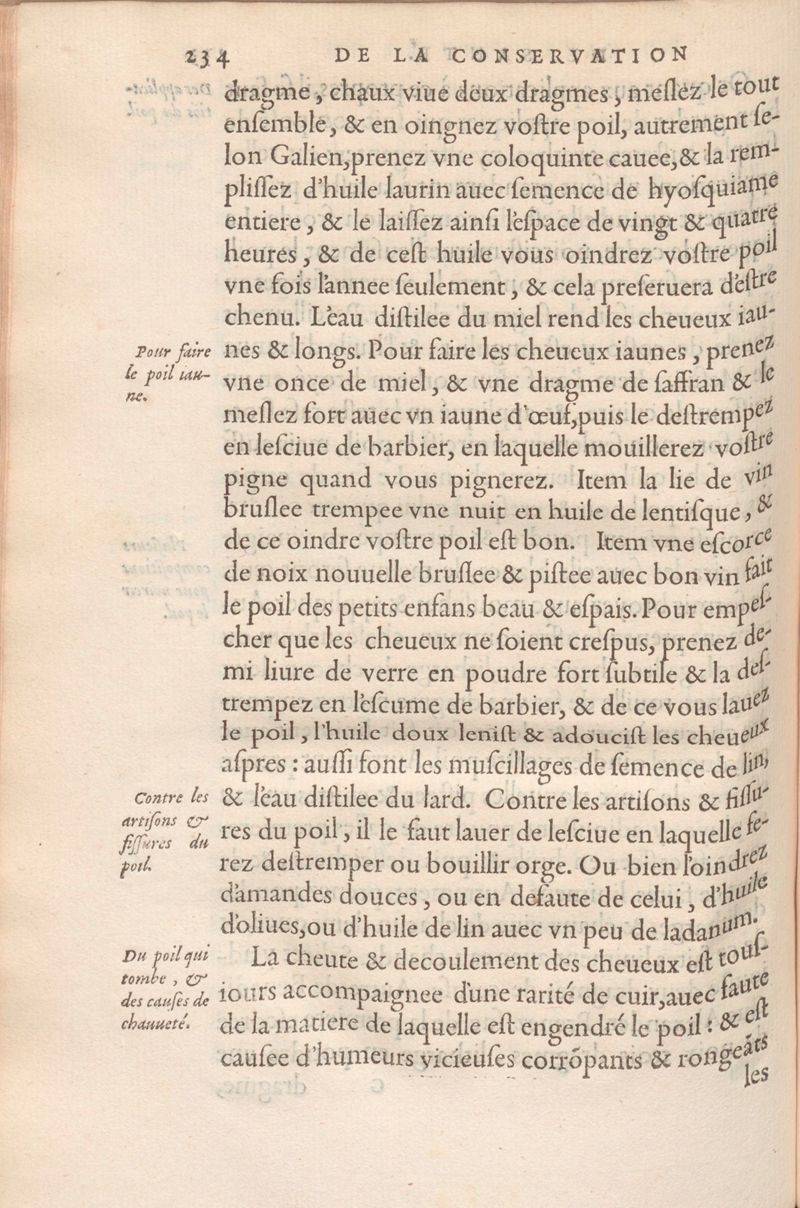 234 DE LA CONSERVATION
dragme, chaux viue deux dragmes, meſlez le tout
enſemble, & en oingnez voſtre poil, autrement ſe-
lon Galien, prenez vne coloquinte cauee, & la rem-
pliſſez d'huile laurin auec ſemence de hyoſquiame
entiere, & le laiſſez ainſi l'eſpace de vingt & quatre
heures, & de ceſt huile vous oindrez voſtre poil
vne fois l'annee ſeulement, & cela preſeruera d'eſtre
chenu. L'eau diſtilee du miel rend les cheueux iau-
nes & longs. Pour faire les cheueux iaunes, prenez
vne once de miel, & vne dragme de ſaffran & le
meſlez fort auec vn iaune d'œuf, puis le deſtrempez
en leſciue de barbier, en laquelle mouillerez voſtre
pigne quand vous pignerez. Item la lie de vin
bruſlee trempee vne nuit en huile de lentiſque, &
de ce oindre voſtre poil eſt bon. Item vne eſcorce
de noix nouuelle bruſlee & piſtee auec bon vin fait
le poil des petits enfans beau & eſpais. Pour empeſ-
cher que les cheueux ne ſoient creſpus, prenez de-
mi liure de verre en poudre fort ſubtile & la deſ-
trempez en l'eſcume de barbier, & de ce vous lauez
le poil, l'huile doux leniſt & adouciſt les cheueux
aſpres : auſſi font les muſcillages de ſemence de lin,
& l'eau diſtilee du lard. Contre les artiſons & fiſſu-
res du poil, il le faut lauer de leſciue en laquelle ſe-
rez deſtremper ou bouillir orge. Ou bien l'oindrez
d'amandes douces, ou en defaute de celui, d'huile
d'oliues, ou d'huile de lin auec vn peu de ladanum.
La cheute & decoulement des cheueux eſt touſ-
iours accompaignee d'une rarité de cuir, auec faute
de la matiere de laquelle eſt engendré le poil : & eſt
cauſee d'humeurs vicieuſes corrõpants & rongeãts
les
Pour faire
le poil iau-
ne.
Contre les
artiſons &
fiſſures du
poil.
Du poil qui
tombe, &
des cauſes de
chauueté.